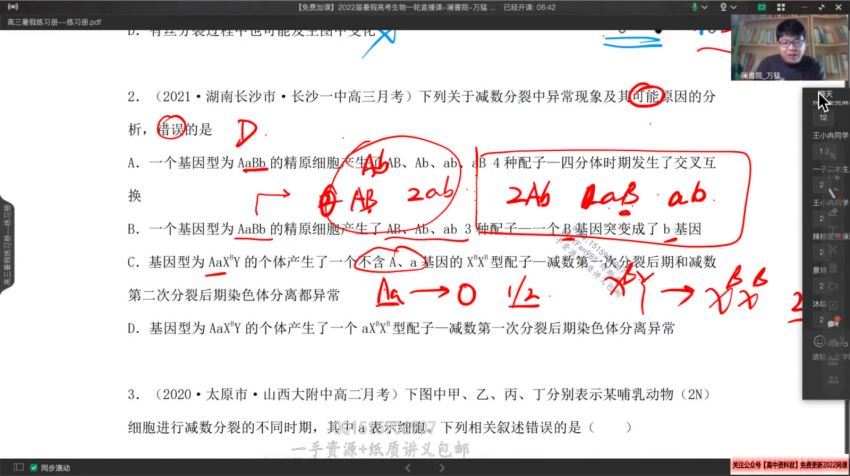 【免费加课】2022届暑假高考生物一轮直播课-澜書院-万猛 ... 已经开课: 06:42
高三暑假练习册----练习册.pdf
D. 有丝分裂过程中也可能发生图中变化
澜書院_万猛
聊天
2. （2021·湖南长沙市·长沙一中高三月考）下列关于减数分裂中异常现象及其可能原因的分
析，错误的是 D
12
王小冉同学
A. 一个基因型为 AaBb 的精原细胞产生了 AB、Ab、ab、aB 4 种配子—四分体时期发生了交叉互
换
Ab
AB 2ab
2Ab aB ab
一子二本生
2
王小冉同学
2
B. 一个基因型为 AaBb 的精原细胞产生了 AB、Ab、ab 3 种配子—一个 B 基因突变成了 b 基因
2
C. 基因型为 AaXᴮY 的个体产生了一个不含 A、a 基因的 XᴮXᴮ型配子—减数第一次分裂后期和减数
景怡
2
第二次分裂后期染色体分离都异常
Aa → 0 1/2 XᴮY → XᴮXᴮ 2
2
D. 基因型为 AaXᴮY 的个体产生了一个 aXᴮXᴮ型配子—减数第一次分裂后期染色体分离异常
3. （2020·太原市·山西大附中高二月考）下图中甲、乙、丙、丁分别表示某哺乳动物（2N）
细胞进行减数分裂的不同时期，其中 a 表示细胞。下列相关叙述错误的是（ ）
一手资源+纸质讲义包邮
高三暑假练习册---练习册
同步滚动
关注公众号【高中资料君】免费更新2022网课